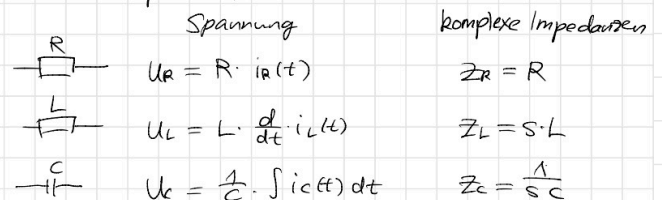 Spannung komplexe Impedanzen
R U_R = R · i_R(t) Z_R = R
L U_L = L · d/dt · i_L(t) Z_L = S·L
C U_C = 1/C · ∫ i_C(t) dt Z_C = 1/(S C)